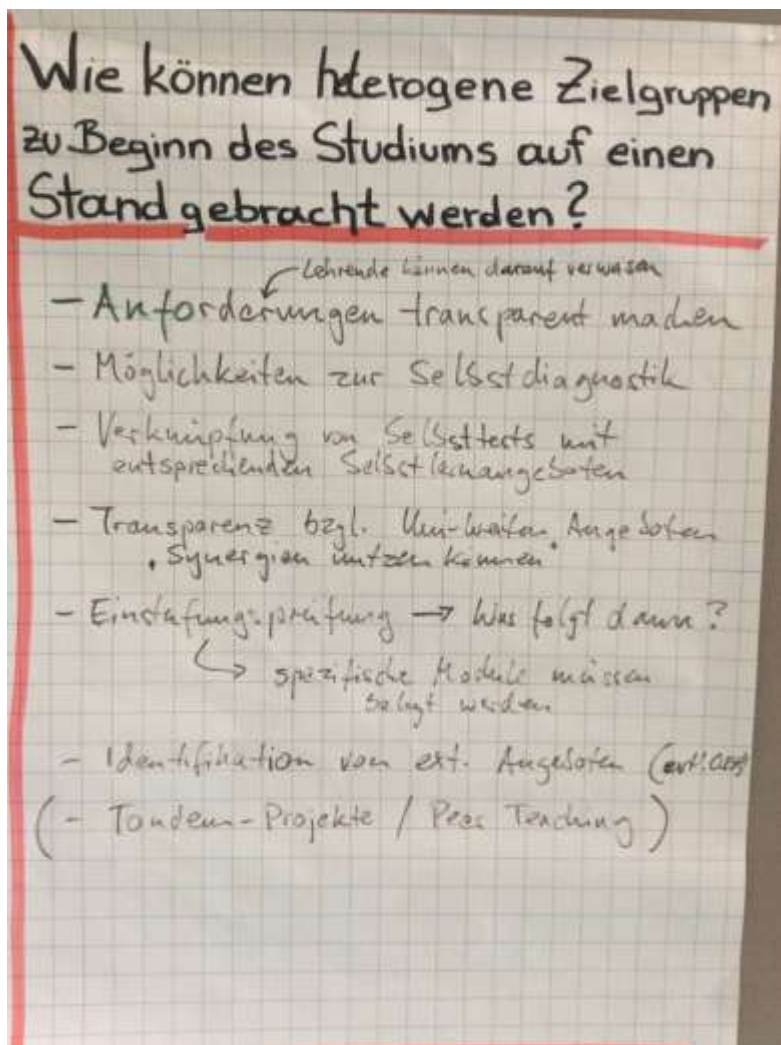 Wie können heterogene Zielgruppen
zu Beginn des Studiums auf einen
Stand gebracht werden?
Lehrende können darauf verweisen
- Anforderungen transparent machen
- Möglichkeiten zur Selbstdiagnostik
- Verknüpfung von Selbsttests mit
entsprechenden Selbstlernangeboten
- Transparenz bzgl. Uni-weiten Angeboten
. Synergien nutzen können
- Einstufungsprüfung → Was folgt dann?
↳ spezifische Module müssen
belegt werden
- Identifikation von ext. Angeboten
(- Tandem-Projekte / Peer Teaching)